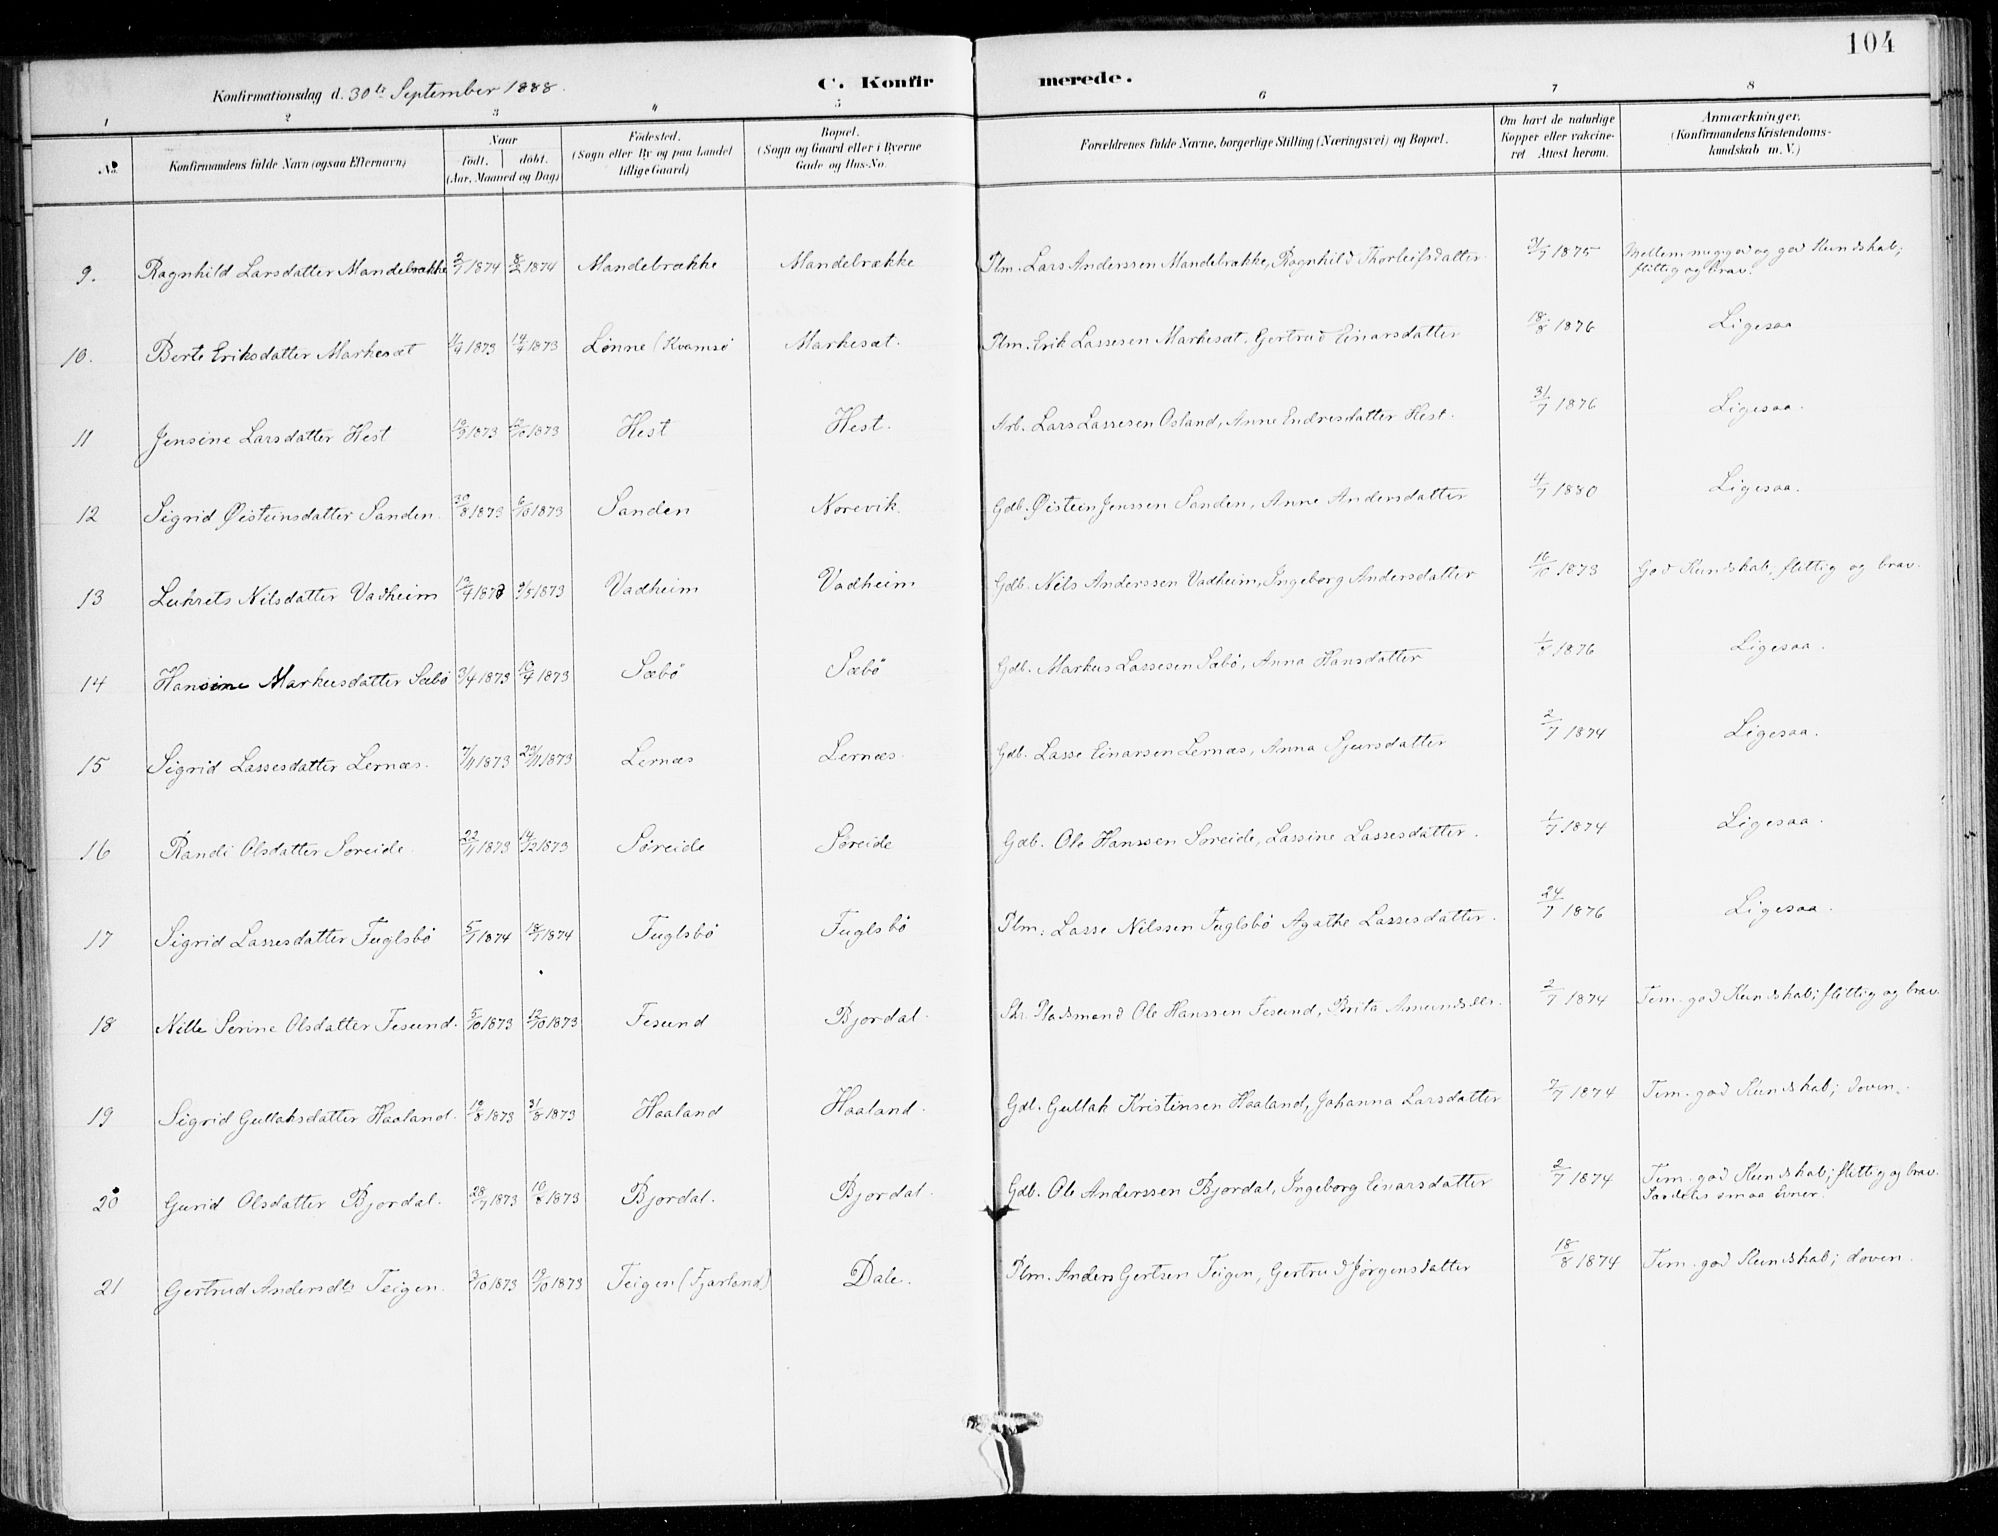 104
Konfirmationsdag d. 30te September 1888.
C. Konfirmerede.
1 2 3 4 5 6 7 8
No. Konfirmandens fulde Navn (ogsaa Efternavn) Naar født. døbt. (Aar, Maaned og Dag) Fødested. (Sogn eller By og paa Landet tillige Gaard) Bopæl. (Sogn og Gaard eller i Byerne Gade og Hus-No. Forældrenes fulde Navne, borgerlige Stilling (Næringsvei) og Bopæl. Om havt de naturlige Kopper eller vakcineret Attest herom. Anmærkninger. (Konfirmandens Kristendomskundskab m. V.)
9. Ragnhild Larsdatter Mandebrække 2/1 1874 8/2 1874 Mandebrække Mandebrække Plm. Lars Anderssen Mandebrække, Ragnhild Thorleifsdatter 1875 Mellem meget god og god Kundskab; flittig og brav.
10. Berte Eriksdatter Markesæt 1873 14/4 1873 Lønne (Kvamsø Markesæt. Plm. Erik Lassesen Markesæt, Gertrud Einarsdatter 18/8 1876 Ligesaa
11 Jensine Larsdatter Hest 1873 1873 Hest Hest. Arb. Lars Lassesen Osland, Anne Endresdatter Hest. 31/7 1876 Ligesaa.
12 Sigrid Øisteinsdatter Sanden. 30/8 1873 6/10 1873 Sanden Norevik. Gdb. Øistein Jenssen Sanden, Anne Andersdatter 4/7 1880 Ligesaa.
13 Lukrets Nilsdatter Vadheim 1873 9/5 1873 Vadheim Vadheim Gdb. Nils Anderssen Vadheim, Ingeborg Andersdatter 16/10 1873 God Kundskab, flittig og brav.
14 Hansine Markusdatter Sæbø 3/4 1873 1873 Sæbø Sæbø Gdb. Markus Lassesen Sæbø, Anna Hansdatter 1876 Ligesaa.
15 Sigrid Lassesdatter Lernæs. 7/11 1873 23/11 1873 Lernæs Lernæs. Gdb. Lasse Einarsen Lernæs, Anna Sjursdatter 2/7 1874 Ligesaa.
16 Randi Olsdatter Søreide. 22/11 1873 14/12 1873 Søreide Søreide Gdb. Ole Hanssen Søreide, Lassine Lassesdatter. 1/7 1874 Ligesaa.
17 Sigrid Lassesdatter Fuglsbø 5/1 1874 18/1 1874 Fuglsbø Fuglsbø Plm: Lasse Nilssen Fuglsbø Agathe Lassesdatter. 24/7 1876 Ligesaa.
18 Nille Serine Olsdatter Tesund. 5/10 1873 12/10 1873 Tesund Bjordal. Skr. Pladsmand Ole Hanssen Tesund, Brita Amundsdtr. 2/7 1874 Tem. god Kundskab; flittig og brav.
19 Sigrid Gullaksdatter Haaland. 1873 31/8 1873 Haaland Haaland. Gdb. Gullak Kristinsen Haaland, Johanna Larsdatter 2/7 1874 Tem. god Kundskab; doven.
20 Gurid Olsdatter Bjordal. 28/7 1873 10/8 1873 Bjordal. Bjordal. Gdb. Ole Anderssen Bjordal, Ingeborg Einarsdatter 2/7 1874 Tem. god Kundskab; flittig og brav. Særdeles smaa Evner.
21 Gertrud Andersdtr Teigen. 1873 1873 Teigen (Fjærland) Dale. Plm. Anders Gertsen Teigen, Gertrud Jørgensdatter 18/8 1874 Tem. god Kundskab; doven.